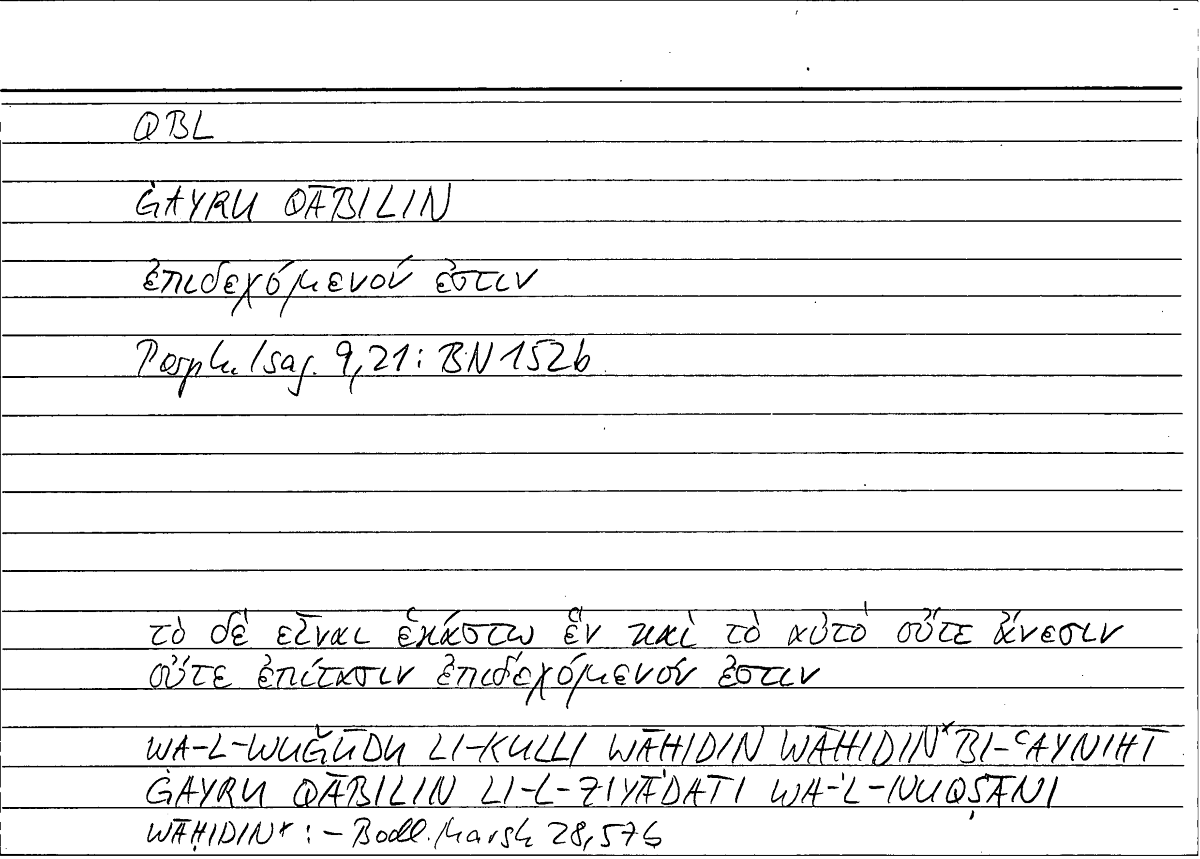 QBL
ĠAYRU QĀBILIN
ἐπιδεχόμενόν ἐστιν
Porph. Isag. 9,21: BN 152b
τὸ δὲ εἶναι ἑκάστῳ ἓν καὶ τὸ αὐτὸ οὔτε ἄνεσιν
οὔτε ἐπίτασιν ἐπιδεχόμενόν ἐστιν
WA-L-WUǦŪDU LI-KULLI WĀḤIDIN WĀḤIDIN* BI-ʿAYNIHĪ
ĠAYRU QĀBILIN LI-L-ZIYĀDATI WA-L-NUQṢĀNI
WĀḤIDIN* : – Bodl. Marsh 28,57b